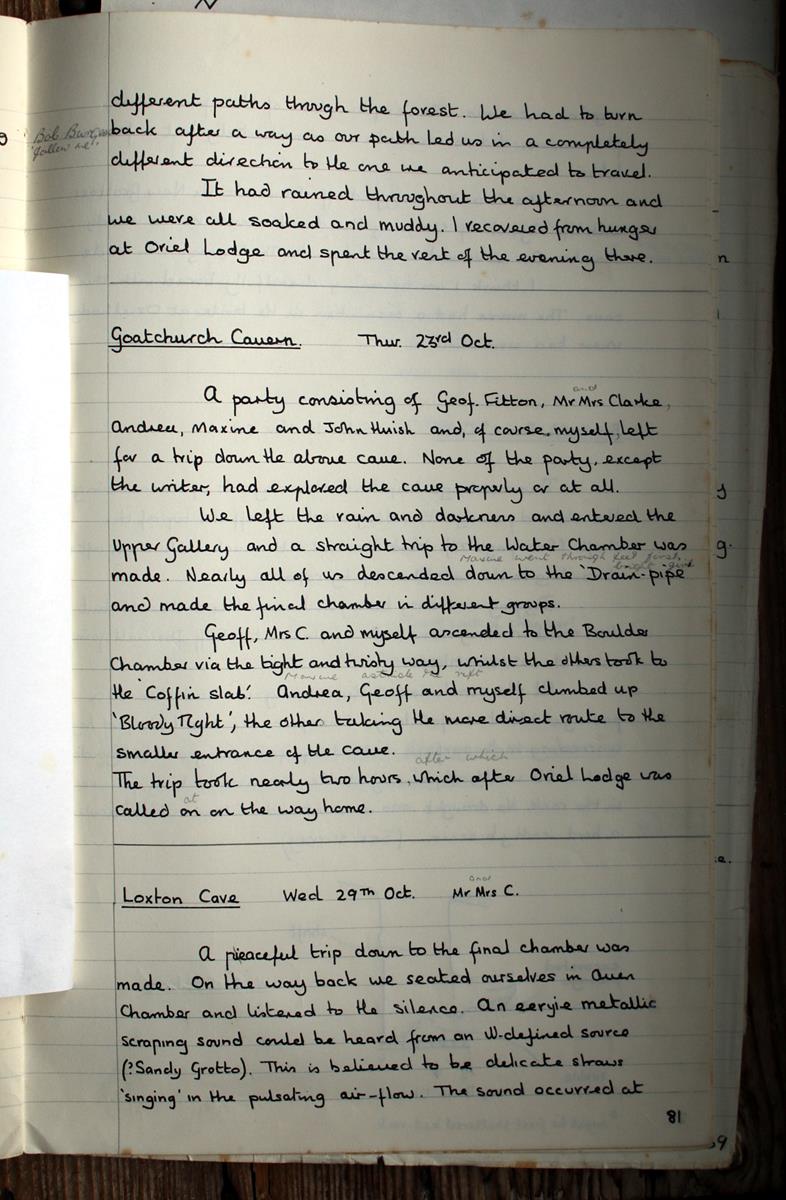 different paths through the forest. We had to turn
Bob
'follow me'
back after a way as our path led us in a completely
different direction to the one we anticipated to travel.
It had rained throughout the afternoon and
we were all soaked and muddy. I recovered from hunger
at Oriel Lodge and spent the rest of the evening there.
Goatchurch Cavern. Thur. 23rd Oct.
and
A party consisting of Geof. Fitton, Mr Mrs Clarke,
Andrea, Maxine and John Huish and, of course, myself, left
for a trip down the above cave. None of the party, except
the writer, had explored the cave properly or at all.
We left the rain and darkness and entered the
Upper Gallery and a straight trip to the Water Chamber was
Maxine went through feet first
bright girl
made. Nearly all of us descended down to the 'Drain-pipe'
and made the final chamber in different groups.
Geoff, Mrs C. and myself ascended to the Boulder
Chamber via the tight and twisty way, whilst the others took to
Maxine astride the rift
the 'Coffin slab'. Andrea, Geoff and myself climbed up
'Bloody Tight', the other taking the more direct route to the
smaller entrance of the cave.
after which
The trip took nearly two hours, which after Oriel Lodge was
at
called on on the way home.
and
Loxton Cave Wed 29th Oct. Mr Mrs C.
A peaceful trip down to the final chamber was
made. On the way back we seated ourselves in Aven
Chamber and listened to the silence. An eeryie metallic
scraping sound could be heard from an ill-defined source
(?Sandy Grotto). This is believed to be delicate straws
'singing' in the pulsating air-flow. The sound occurred at
81